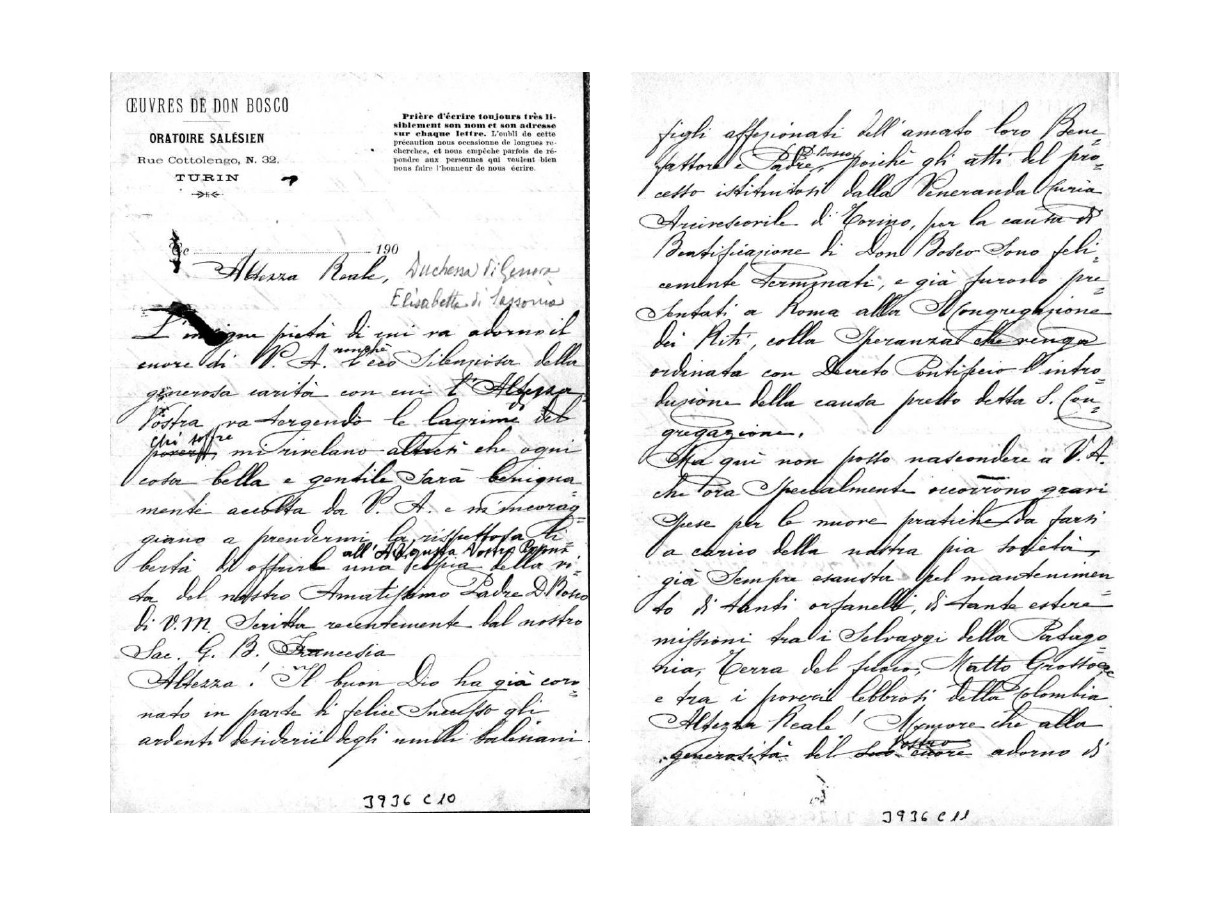 ŒUVRES DE DON BOSCO
ORATOIRE SALÉSIEN
Rue Cottolengo, N. 32.
TURIN
Prière d'écrire toujours très li-
siblement son nom et son adresse
sur chaque lettre. L'oubli de cette
précaution nous occasionne de longues re-
cherches, et nous empêche parfois de ré-
pondre aux personnes qui veulent bien
nous faire l'honneur de nous écrire.
le 190
Altezza Reale,
Duchessa di Genova
Elisabetta di Sassonia
L'insigne pietà di cui va adorno il
nonchè
cuore di V. A. l'eco silenziosa della
generosa carità con cui l'Altezza
Vostra va tergendo le lagrime del
chi soffre
poveri mi rivelano altresì che ogni
cosa bella e gentile sarà benigna
mente accolta da V. A. e m'incorag=
giano a prendermi la rispettosa li=
all'Augusta Vostra
bertà di offrire una copia della vi=
ta del nostro Amatissimo Padre D. Bosco
di V. M. Scritta recentemente dal nostro
Sac. G. B. Francesia
Altezza! Il buon Dio ha già coro=
nato in parte di felice successo gli
ardenti desiderii degli umili Salesiani
3936 C 10
figli affezionati dell'amato loro Bene=
D. Bosco
fattore e Padre, poichè gli atti del pro=
cesso istituitosi dalla Veneranda Curia
Arcivescovile di Torino, per la causa di
Beatificazione di Don Bosco sono feli=
cemente terminati, e già furono pre=
sentati a Roma alla S. Congregazione
dei Riti, colla speranza che venga
ordinata con Decreto Pontificio l'intro=
duzione della causa presso detta S. Con=
gregazione.
Ma quì non posso nascondere a V. A.
che ora specialmente occorrono gravi
spese per le nuove pratiche da farsi
a carico della nostra pia società,
già sempre esausta pel mantenimen
to di tanti orfanelli, di tante estere
missioni tra i Selvaggi della Patago
nia, Terra del fuoco, Matto Grosso ecc
e tra i poveri lebbrosi della Colombia.
Altezza Reale! Memore che alla
Vostro
generosità del suo cuore adorno di
3936 C 11